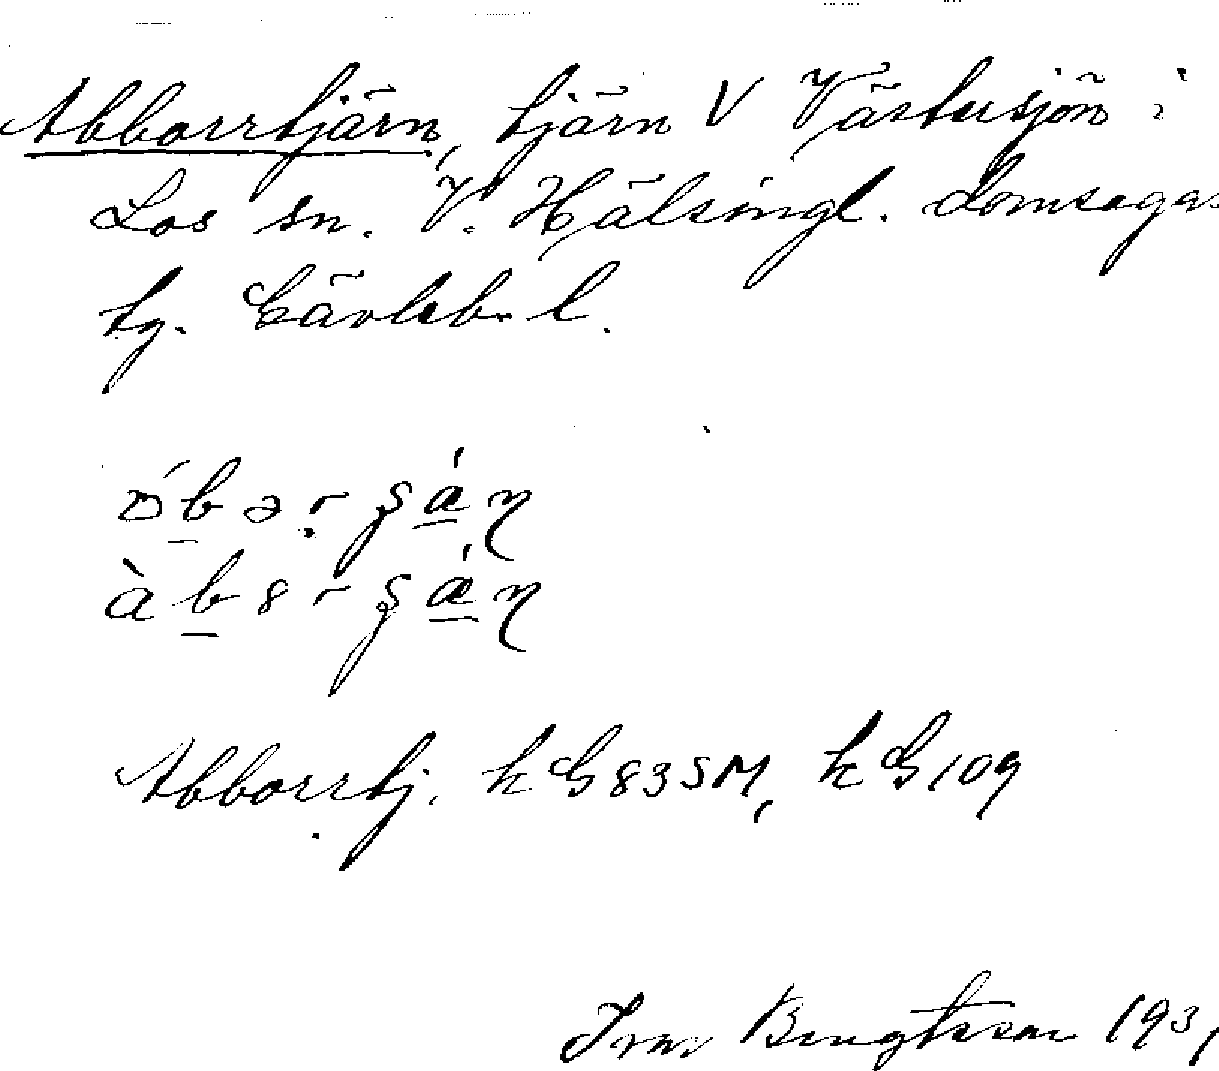 Abborrtjärn, tjärn V Västersjön i
Los sn. V. Hälsingl. domsagas
tg. Gävleb. l.
Abborrtj. k G 83 SM, k G 109
Ivar Bengtsson 1931